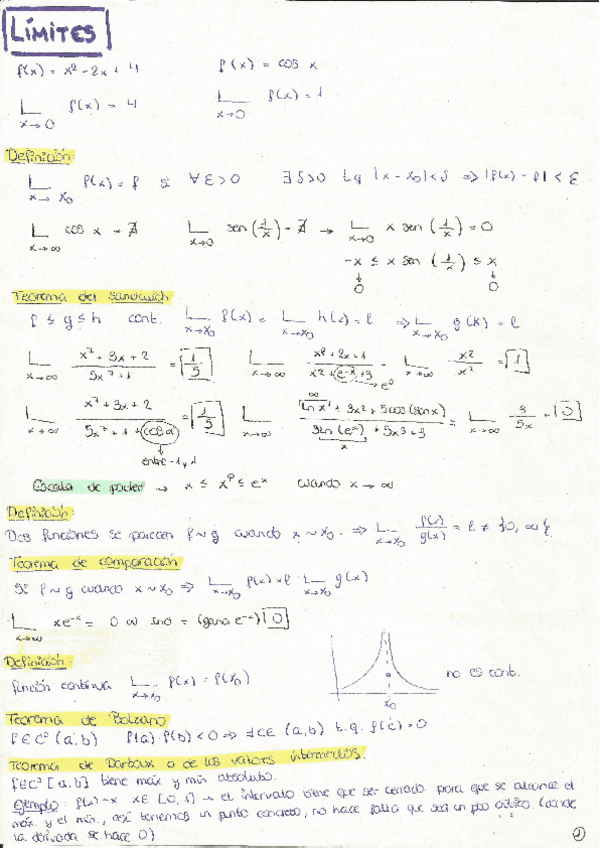 LÍMITES
f(x) = x² - 2x + 4    f(x) = cos x
L x→0 f(x) = 4    L x→0 f(x) = 1
Definición:
L x→x₀ f(x) = l si ∀ε>0 ∃δ>0 t.q |x-x₀|<δ ⇒ |f(x) - l| < ε
L x→∞ cos x = ∄    L x→0 sen (1/x) = ∄ → L x→0 x sen (1/x) = 0
-x ≤ x sen (1/x) ≤ x
0    0
Teorema del sandwich
f ≤ g ≤ h cont. L x→x₀ f(x) = L x→x₀ h(x) = l ⇒ L x→x₀ g(x) = l
L x→∞ = 1/5    L x→∞ L x→∞ x²/x² = 1
e⁰
L x→∞ = 1/5    L x→∞ = L x→∞ 3/5x = 0
entre -1 y 1    x
Escala de poder → x ≤ xᵖ ≤ eˣ cuando x → ∞
Definición:
Dos funciones se parecen f~g cuando x~x₀. ⇒ L x→x₀ f(x)/g(x) = l ≠ {0, ∞{
Teorema de comparación
Si f~g cuando x~x₀ ⇒ L x→x₀ f(x) = l · L x→x₀ g(x)
L x→∞ xe⁻ˣ = = (gana e⁻ˣ) 0
Definición:
función continua L x→x₀ f(x) = f(x₀)
no es cont.
x₀
Teorema de Bolzano
f∈C⁰ (a,b) f(a)·f(b) < 0 ⇒ ∃c∈ (a,b) t.q. f(c) = 0
Teorema de Darboux o de los valores intermedios.
f∈C⁰ [a,b] tiene máx y mín absoluto.
Ejemplo: f(x) = x x∈ [0,1] → el intervalo tiene que ser cerrado para que se alcance el
máx. y el mín., así tenemos un punto concreto, no hace falta que sea un pto crítico. (donde
la derivada se hace 0)
1